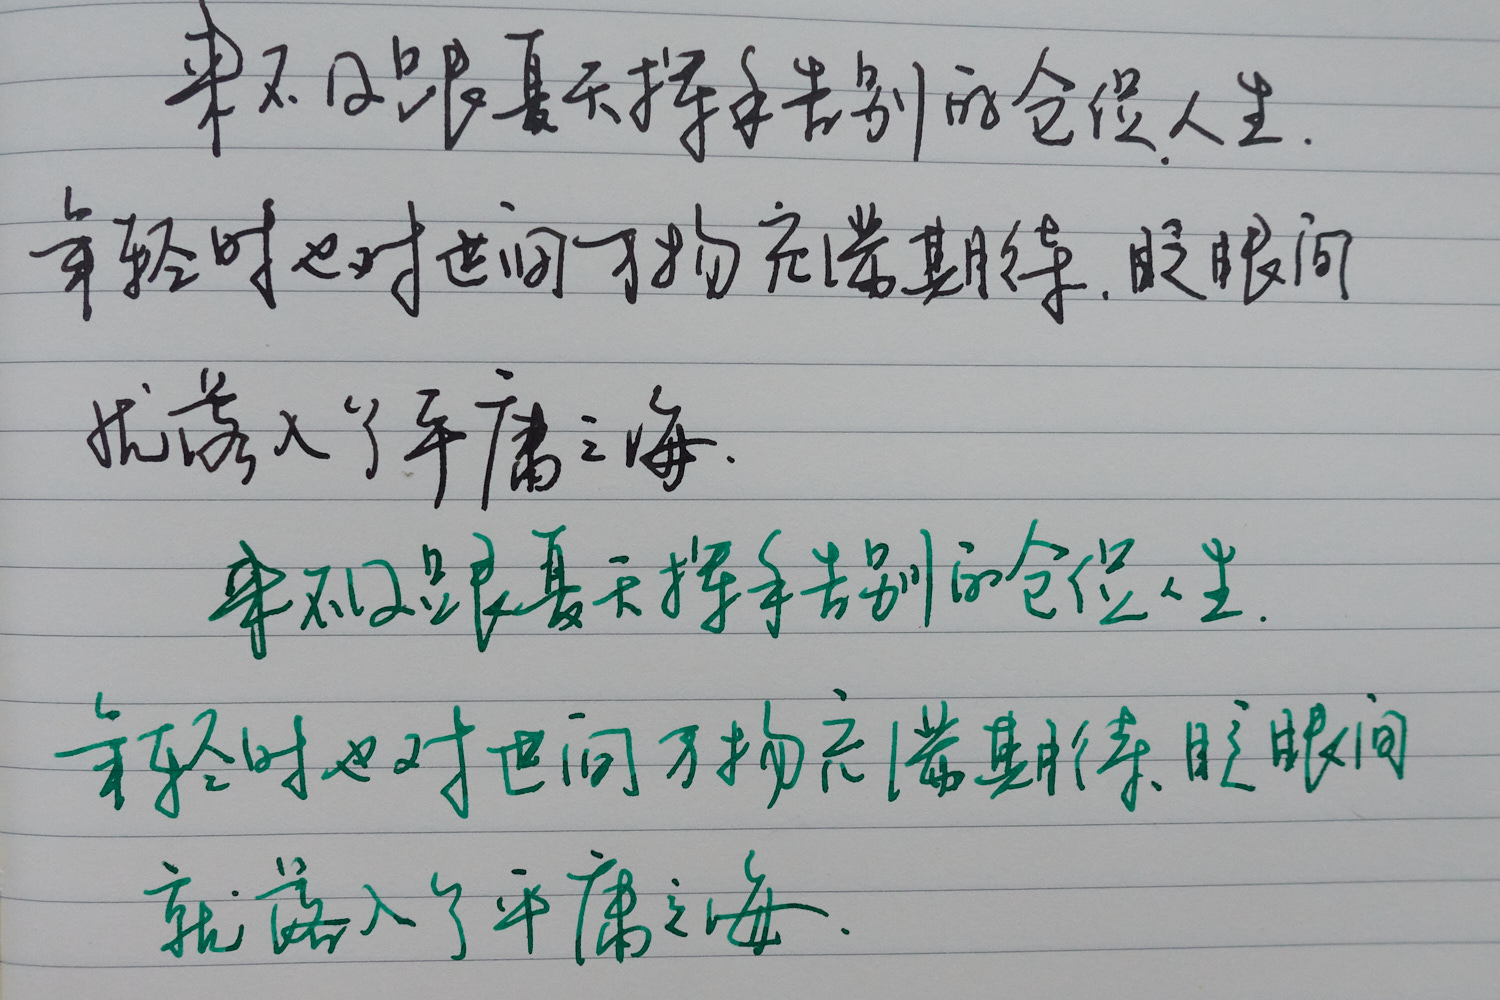 来不及跟夏天挥手告别的仓促人生.
年轻时也对世间万物充满期待.眨眼间
就落入了平庸之海.
来不及跟夏天挥手告别的仓促人生.
年轻时也对世间万物充满期待、眨眼间
就落入了平庸之海.